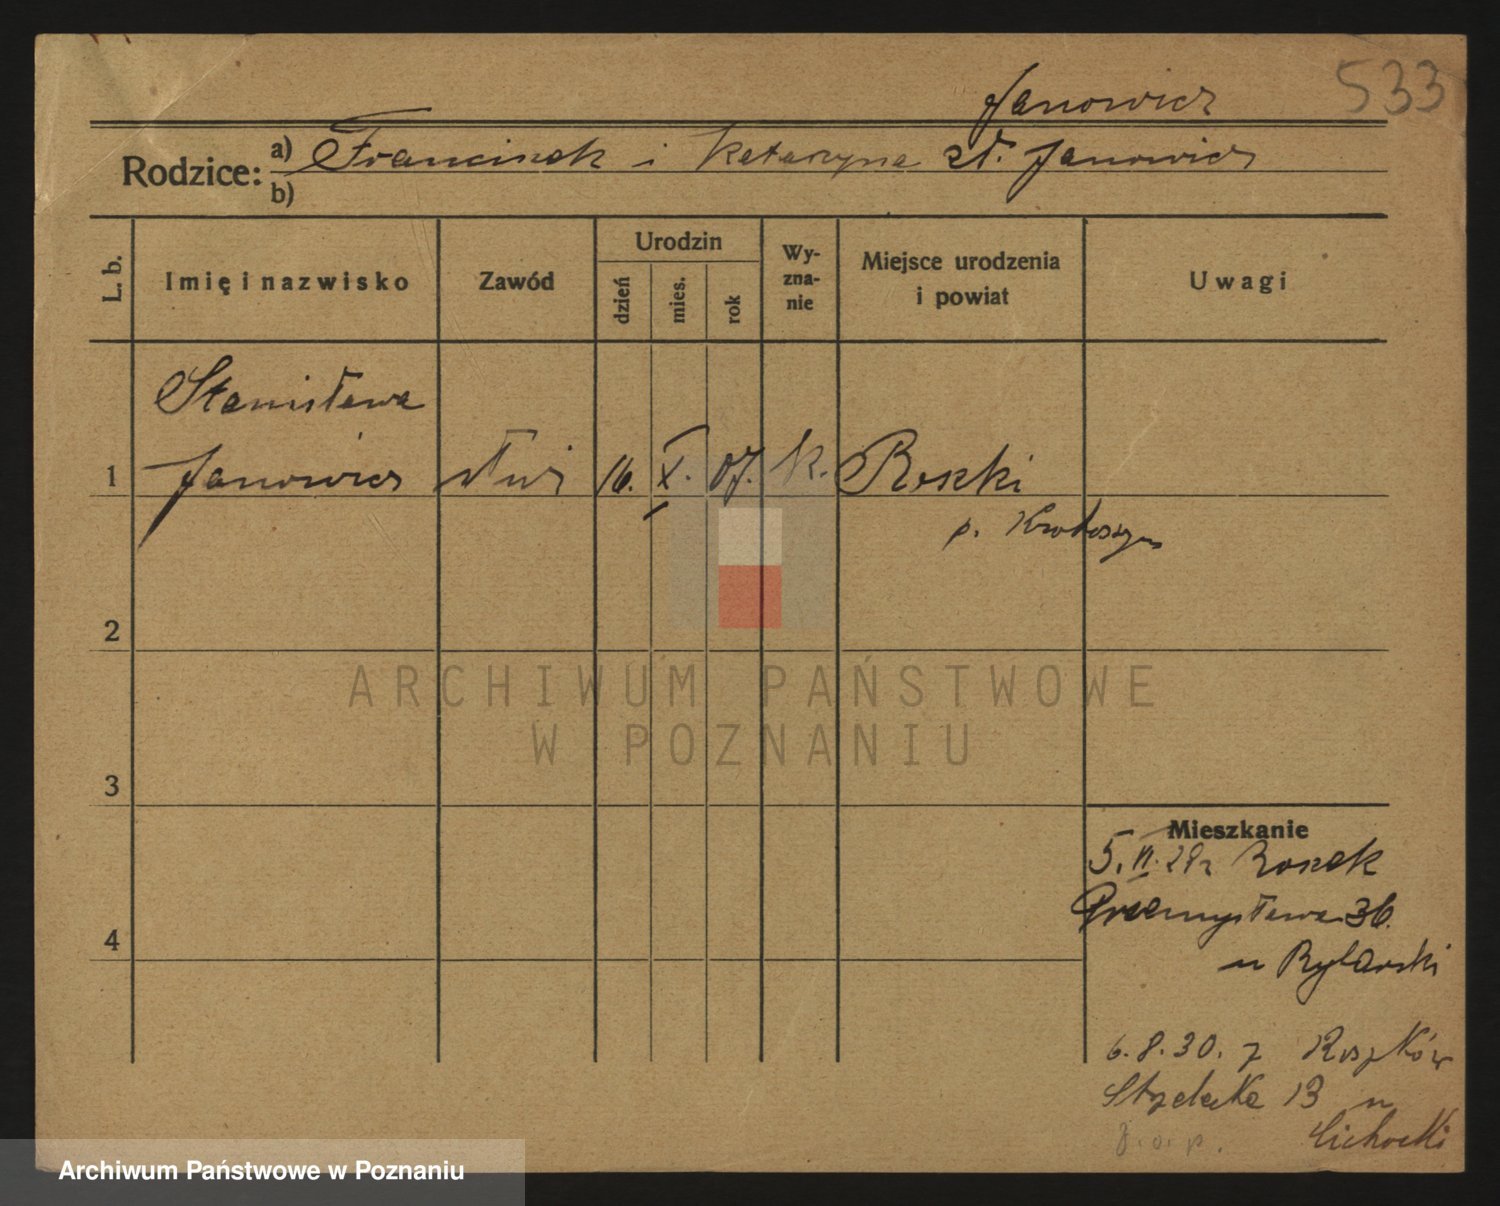 533
Janowicz
Rodzice: a) Franciszek i Katarzyna zd. Janowicz
b)
L. b.
Imię i nazwisko
Zawód
Urodzin
dzień
mies.
rok
Wy-
zna-
nie
Miejsce urodzenia
i powiat
Uwagi
Stanisława
1 Janowicz 16. X. 07. k. Roszki
p. Krotoszyn
2
3
4
Mieszkanie
5. VI. 29r
Przemysława 36.
u Rylarski
6.8.30. z Roszków
Strzelecka 13 u
Cichocki
ARCHIWUM PAŃSTWOWE
W POZNANIU
Archiwum Państwowe w Poznaniu